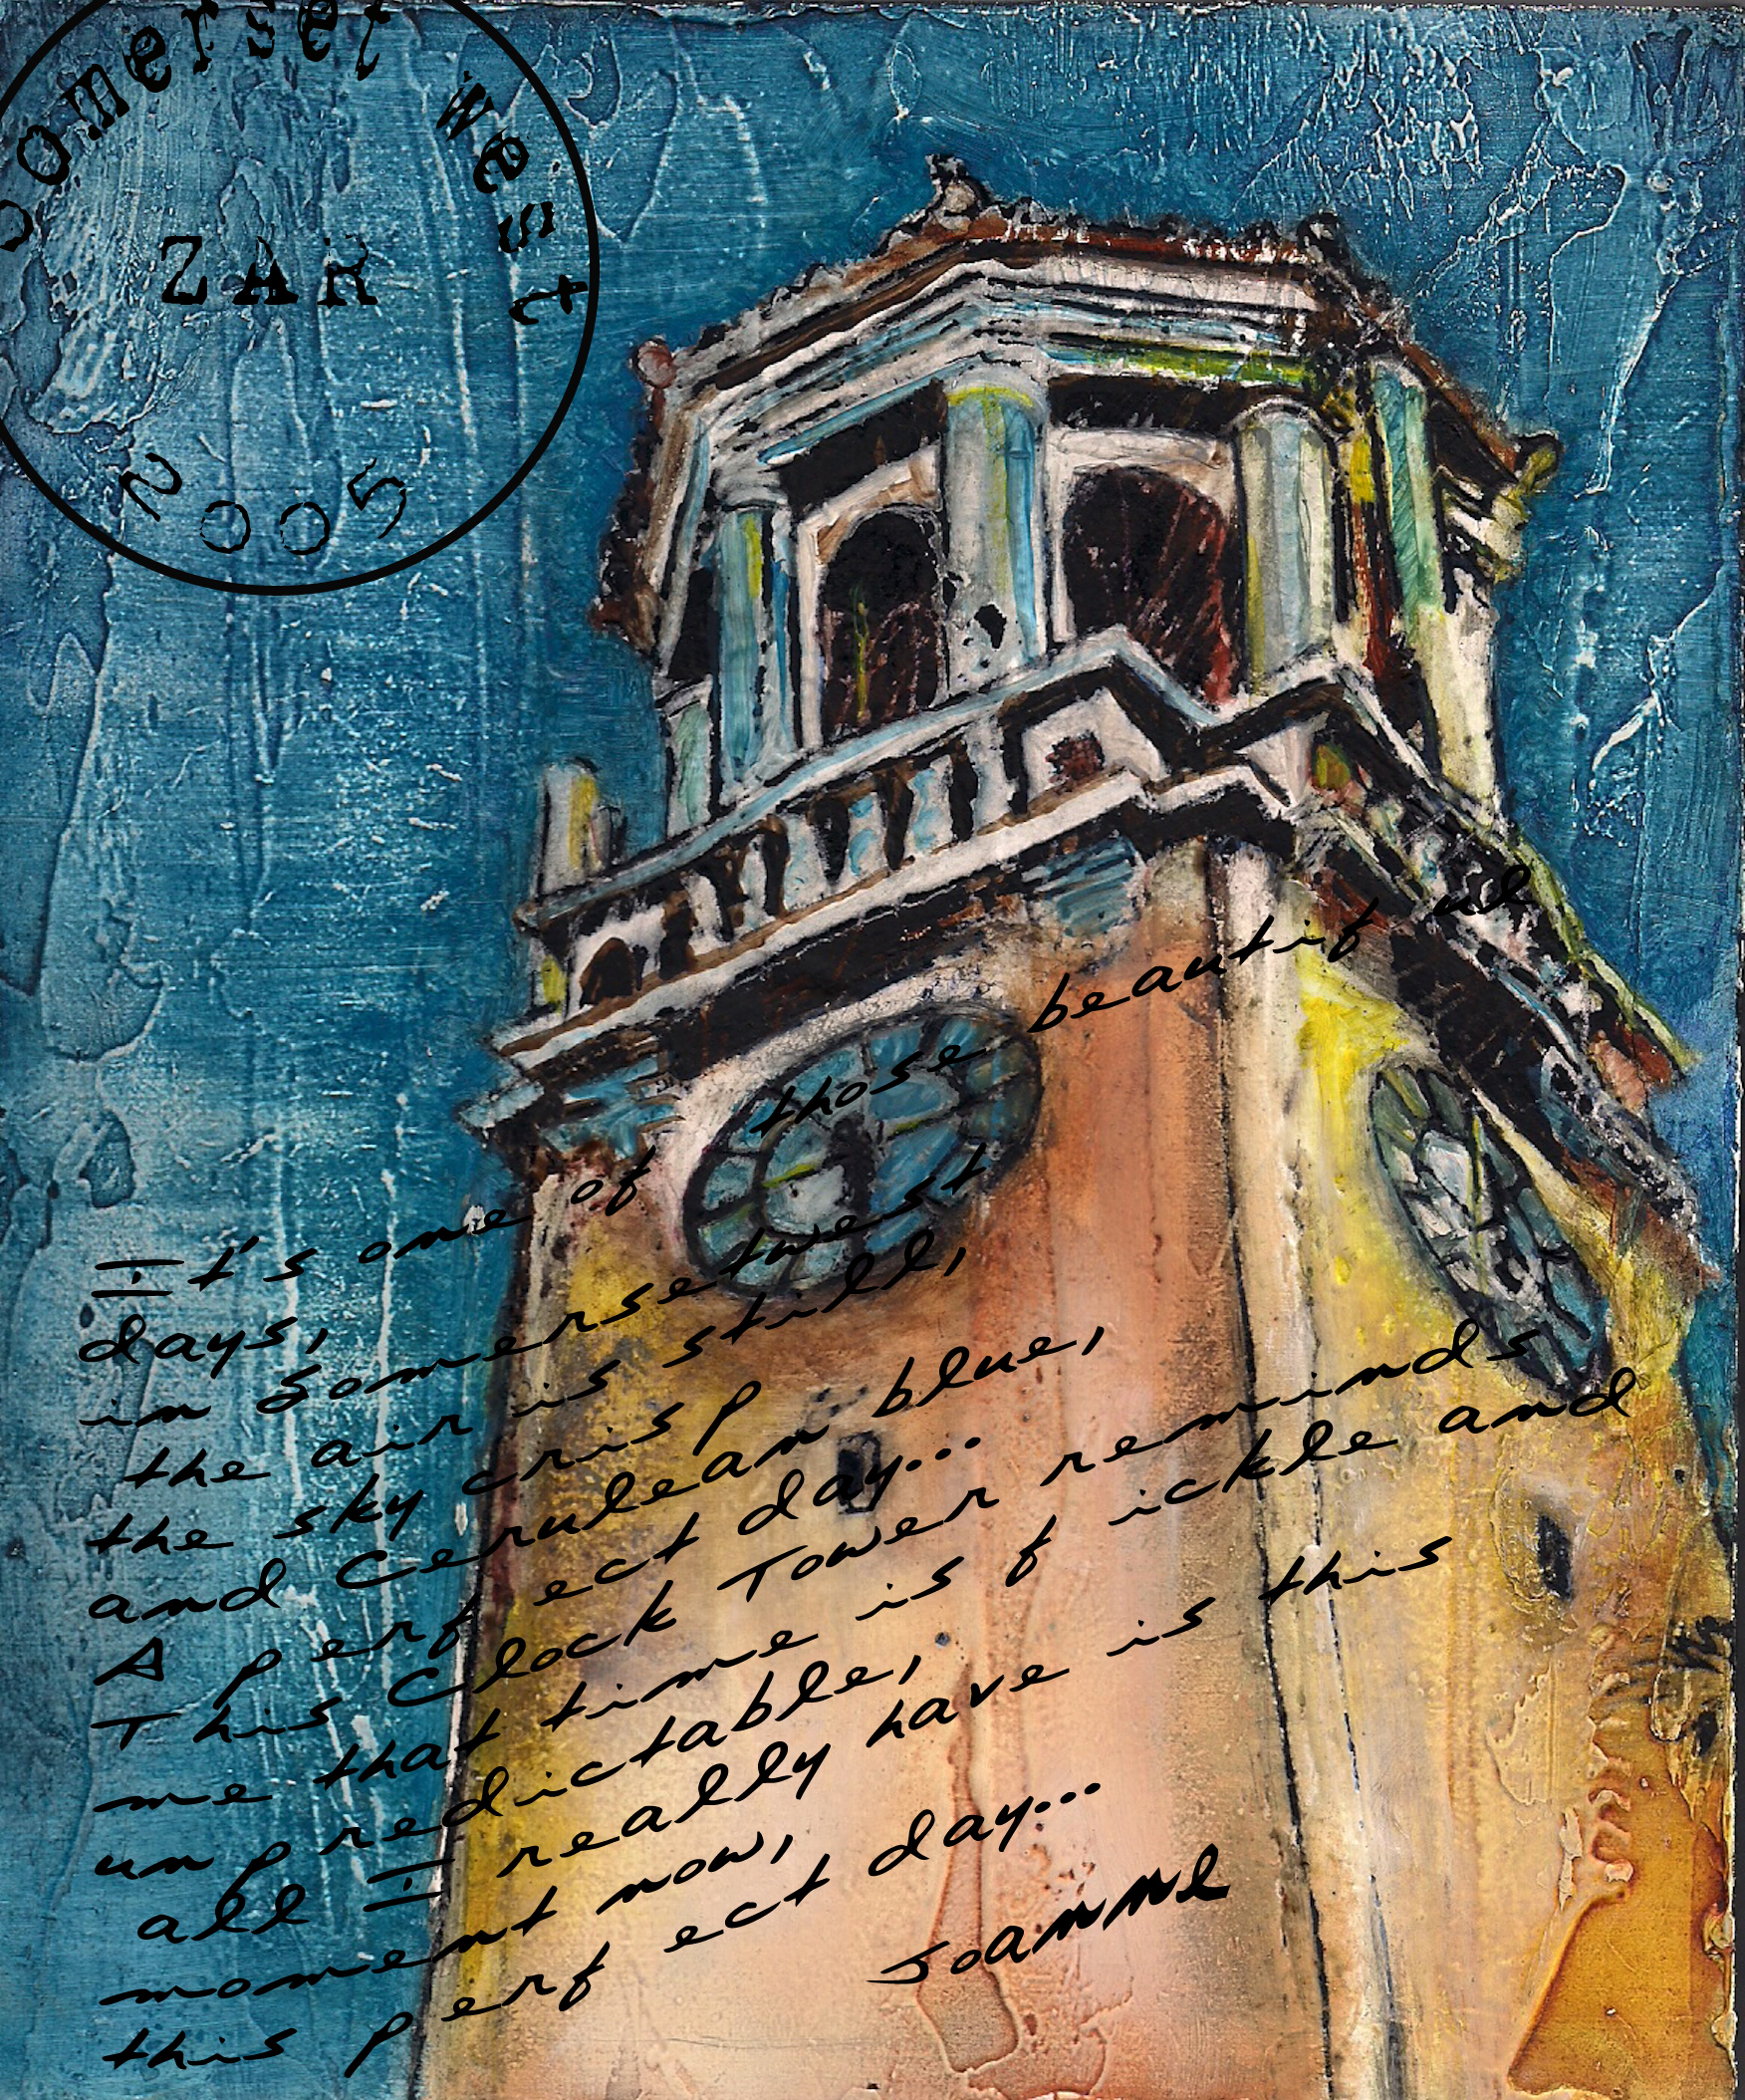 Somerset West
ZAR
2005
It's one of those beautiful
days,
in Somersetwest
the air is still,
the sky crisp
and Cerulean blue,
A perfect day...
This Clock Tower reminds
me that time is fickle and
unpredictable,
all I really have is this
moment now,
this perfect day...
Joanne